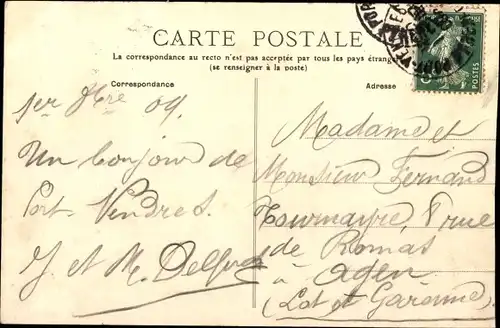 CARTE POSTALE
La correspondance au recto n'est pas acceptée par tous les pays étrang
(se renseigner à la poste)
Correspondance
Adresse
1er 09.
Un bonjour de
Port Vendres.
J. et M.
Madame et
Monsieur Fernand
Tournayre, 8 rue
de Romas
à Agen
(Lot et Garonne)
POSTES